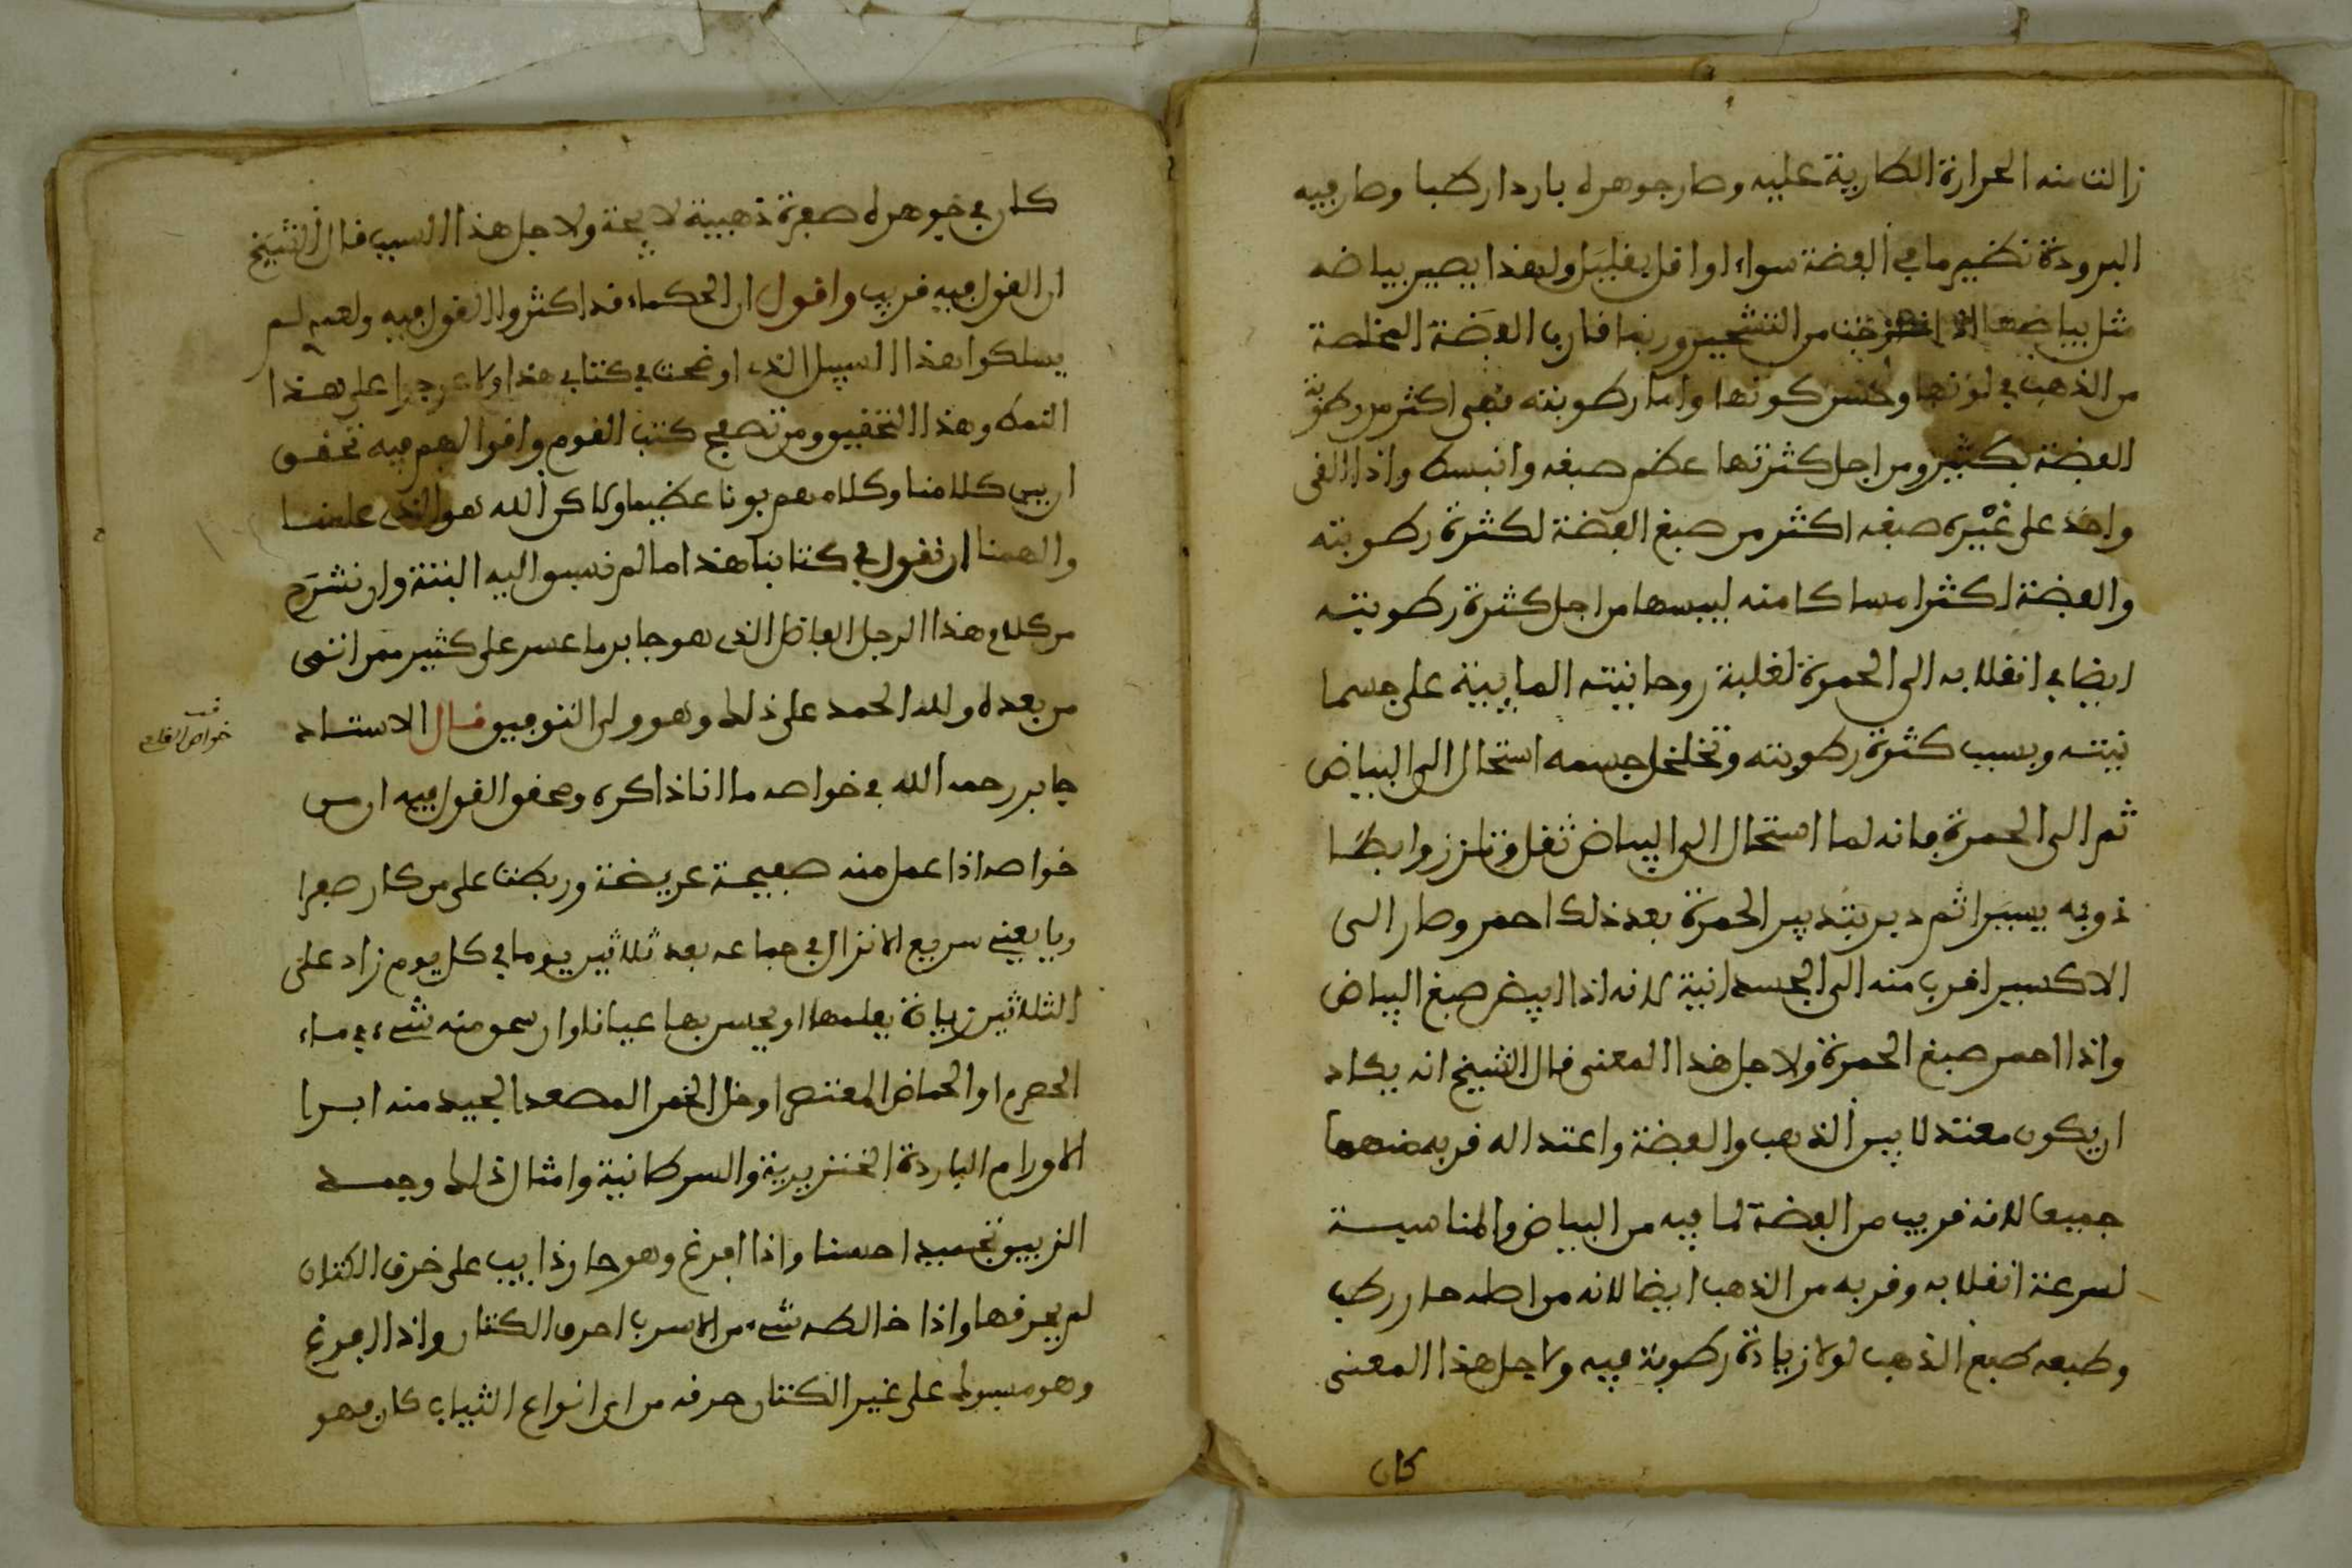 زالت منه الحرارة الطارية عليه وصار جوهره باردا رطبا وصار فيه
البرودة نظير ما في الفضة سواء او اقل بقليل ولهذا يصير بياضه
مثل بياضها اذا من التشحير وربما قارب الفضة المخلصة
من الذهب في لونها وحسن كونها واما رطوبته فهي اكثر من رطوبة
الفضة بكثير ومن اجل كثرتها عظم صبغه وانبسط واذا القى
واحد على غيره صبغه اكثر من صبغ الفضة لكثرة رطوبته
والفضة اكثر امساكا منه ليبسها من اجل كثرة رطوبته
ايضا في انقلابه الى الحمرة لغلبة روحانيته المايية على جسما
نيته وبسبب كثرة رطوبته وتخلخل جسمه استحال الى البياض
ثم الى الحمرة فانه لما استحال الى البياض ثقل وتلزز وابطا
ذوبه يسيرا ثم دبر بتدبير الحمرة بعد ذلك احمر وصار الى
الاكسير اقرب منه الى الجسدانية لانه اذا ابيض صبغ البياض
واذا احمر صبغ الحمرة ولاجل هذا المعنى قال الشيخ انه يكاد
ان يكون معتدلا بين الذهب والفضة واعتداله قربه منهما
جميعا لانه قريب من الفضة لما فيه من البياض والمناسبة
لسرعة انقلابه وقربه من الذهب ايضا لانه من اصله حار رطب
وطبعه طبع الذهب لولا زيادة رطوبة فيه ولاجل هذا المعنى
كان
كان في جوهره صفرة ذهبية لايحة ولاجل هذا السبب قال الشيخ
ان القول فيه قريب واقول ان الحكماء قد اكثروا القول فيه ولعمري لم
يسلكوا هذا السبيل الذى اوضحت في كتابي هذا ولا عرجوا على هذا
النمط وهذا التحقيق ومن تصفح كتب القوم واقوالهم فيه تحقق
ان بين كلامنا وكلامهم بونا عظيما ولاكن الله هو الذى علمنا
والهمنا ان نقول في كتابنا هذا ما لم نسبق اليه البتة وان نشرح
من كلام هذا الرجل الفاضل الذى هو جابر ما عسر على كثير ممن انتمى
من بعده ولله الحمد على ذلك وهو ولى التوفيق قال الاستاد
جابر رحمه الله في خواصه ما انا ذاكره ومحقق القول فيه ان من
خواصه اذا عمل منه صفيحة عريضة وربطت على من كان صفرا
ويا يعني سريع الانزال في جماعه بعد ثلاثين يوما في كل يوم زاد على
الثلاثين زيادة يعلمها او يحس بها عيانا وان سحق منه شيء في ماء
الحصرم او الحماض المعتصر او خل الخمر المصعد الجيد منه ابرا
الاورام الباردة الخنزيرية والسرطانية وامثال ذلك وجمد
الزيبق تجميدا حسنا واذا افرغ وهو حار ذايب على خرق الكتان
لم يحرقها واذا خالطه شيء من الاسرب احرق الكتان واذا افرغ
وهو مسبوك على غير الكتان حرقه من اى انواع الثياب كان فهو
خواص القلعي